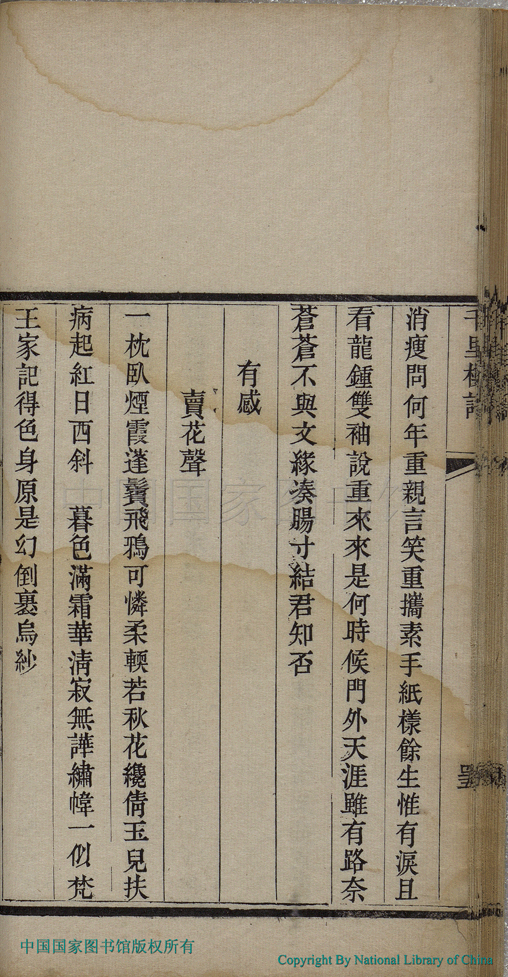 消瘦問何年重親言笑重攜素手紙樣餘生惟有淚且
看龍鍾雙袖說重來來是何時候門外天涯雖有路奈
蒼蒼不與文緣湊腸寸結君知否
有感
賣花聲
一枕臥煙霞蓬鬢飛鴉可憐柔輭若秋花纔倩玉兒扶
病起紅日西斜　暮色滿霜華淸寂無譁繡幃一似梵
王家記得色身原是幻倒裹烏紗
中国国家图书馆版权所有
Copyright By National Library of China